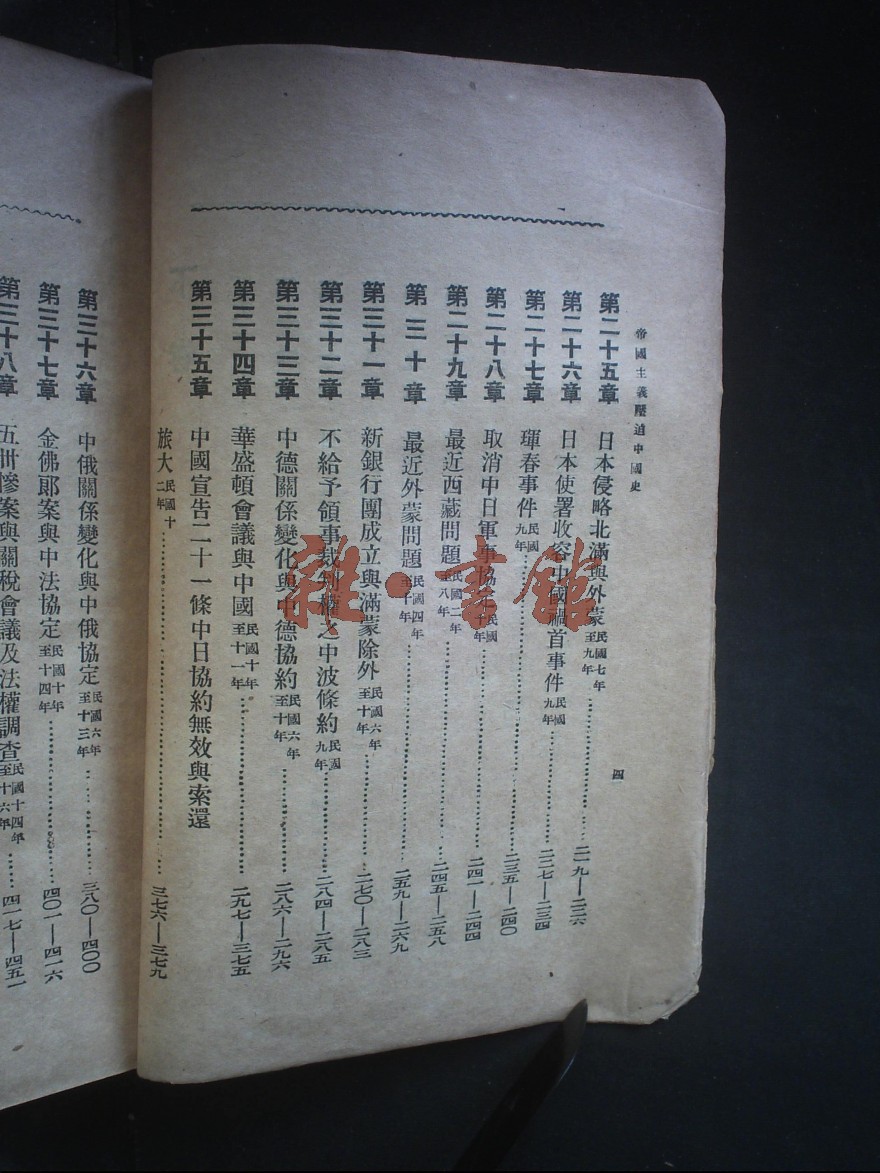 帝國主義壓迫中國史
四
第二十五章 日本侵略北滿與外蒙民國七年至九年……二一九—二二六
第二十六章 日本使署收容中國禍首事件民國九年……二二七—二三四
第二十七章 琿春事件民國九年……二三五—二四〇
第二十八章 取消中日軍事協定民國十年……二四一—二四四
第二十九章 最近西藏問題民國二年至八年……二四五—二五八
第三十章 最近外蒙問題民國四年至十年……二五九—二六九
第三十一章 新銀行團成立與滿蒙除外民國六年至十年……二七〇—二八三
第三十二章 不給予領事裁判權之中波條約民國九年……二八四—二八五
第三十三章 中德關係變化與中德協約民國六年至十年……二八六—二九六
第三十四章 華盛頓會議與中國民國十年至十一年……二九七—三七五
第三十五章 中國宣告二十一條中日協約無效與索還
旅大民國十二年……三七六—三七九
第三十六章 中俄關係變化與中俄協定民國六年至十三年……三八〇—四〇〇
第三十七章 金佛郎案與中法協定民國十年至十四年……四〇一—四一六
第三十八章 五卅慘案與關稅會議及法權調查民國十四年至十六年……四一七—四五一
雜·書館